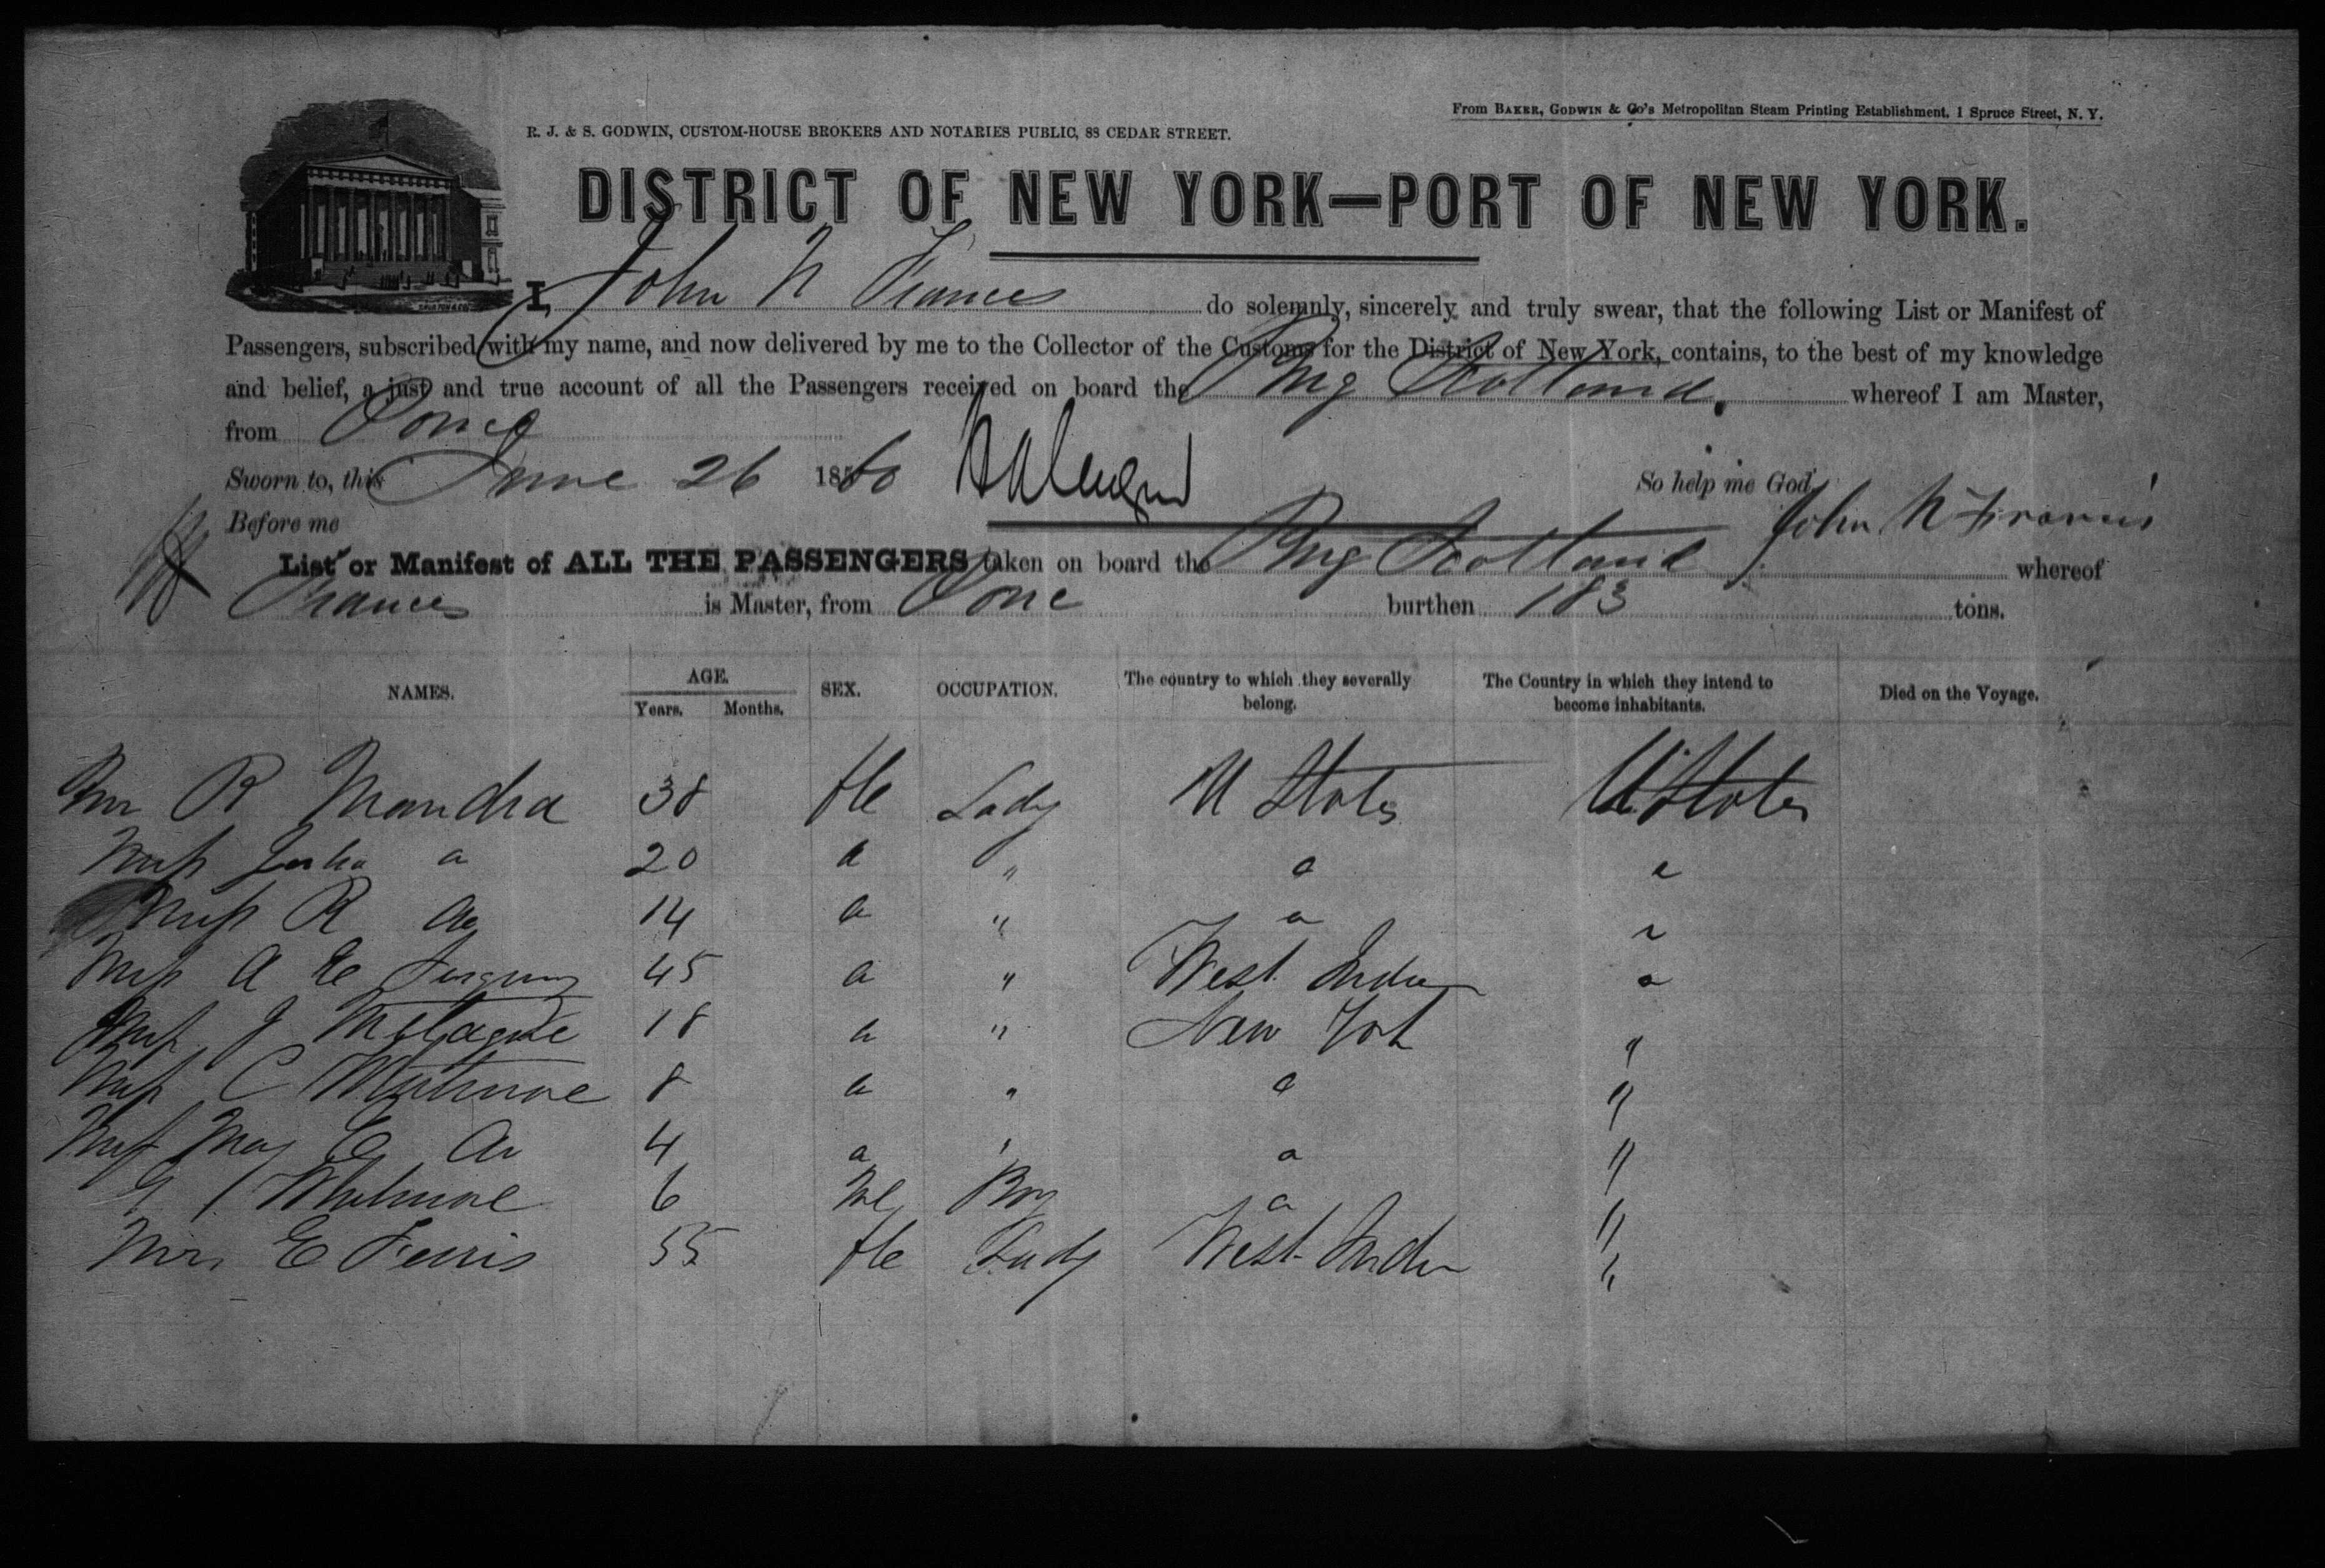 From BAKER, GODWIN & Co's Metropolitan Steam Printing Establishment, 1 Spruce Street, N. Y.
R. J. & S. GODWIN, CUSTOM-HOUSE BROKERS AND NOTARIES PUBLIC, 88 CEDAR STREET.
DISTRICT OF NEW YORK—PORT OF NEW YORK.
I, John N Frances do solemnly, sincerely and truly swear, that the following List or Manifest of
Passengers, subscribed with my name, and now delivered by me to the Collector of the Customs for the District of New York, contains, to the best of my knowledge
and belief, a just and true account of all the Passengers received on board the Brig Scotland whereof I am Master,
from Ponce
Sworn to, this June 26 1860 So help me God,
Before me John N Francis
List or Manifest of ALL THE PASSENGERS taken on board the Brig Scotland whereof
Frances is Master, from Ponce burthen 183 tons.
NAMES. AGE. SEX. OCCUPATION. The country to which they severally belong. The Country in which they intend to become inhabitants. Died on the Voyage.
Years. Months.
R 38 fle Lady U States U States
Miss 20 " "
Miss R 14 "
A E 45 " West Indies
Miss J 18 " New York "
Miss C 8 " "
Miss May E 4 " "
Whitmore 6 Ml Boy "
Mrs E Ferris 55 fle Lady West Indies "